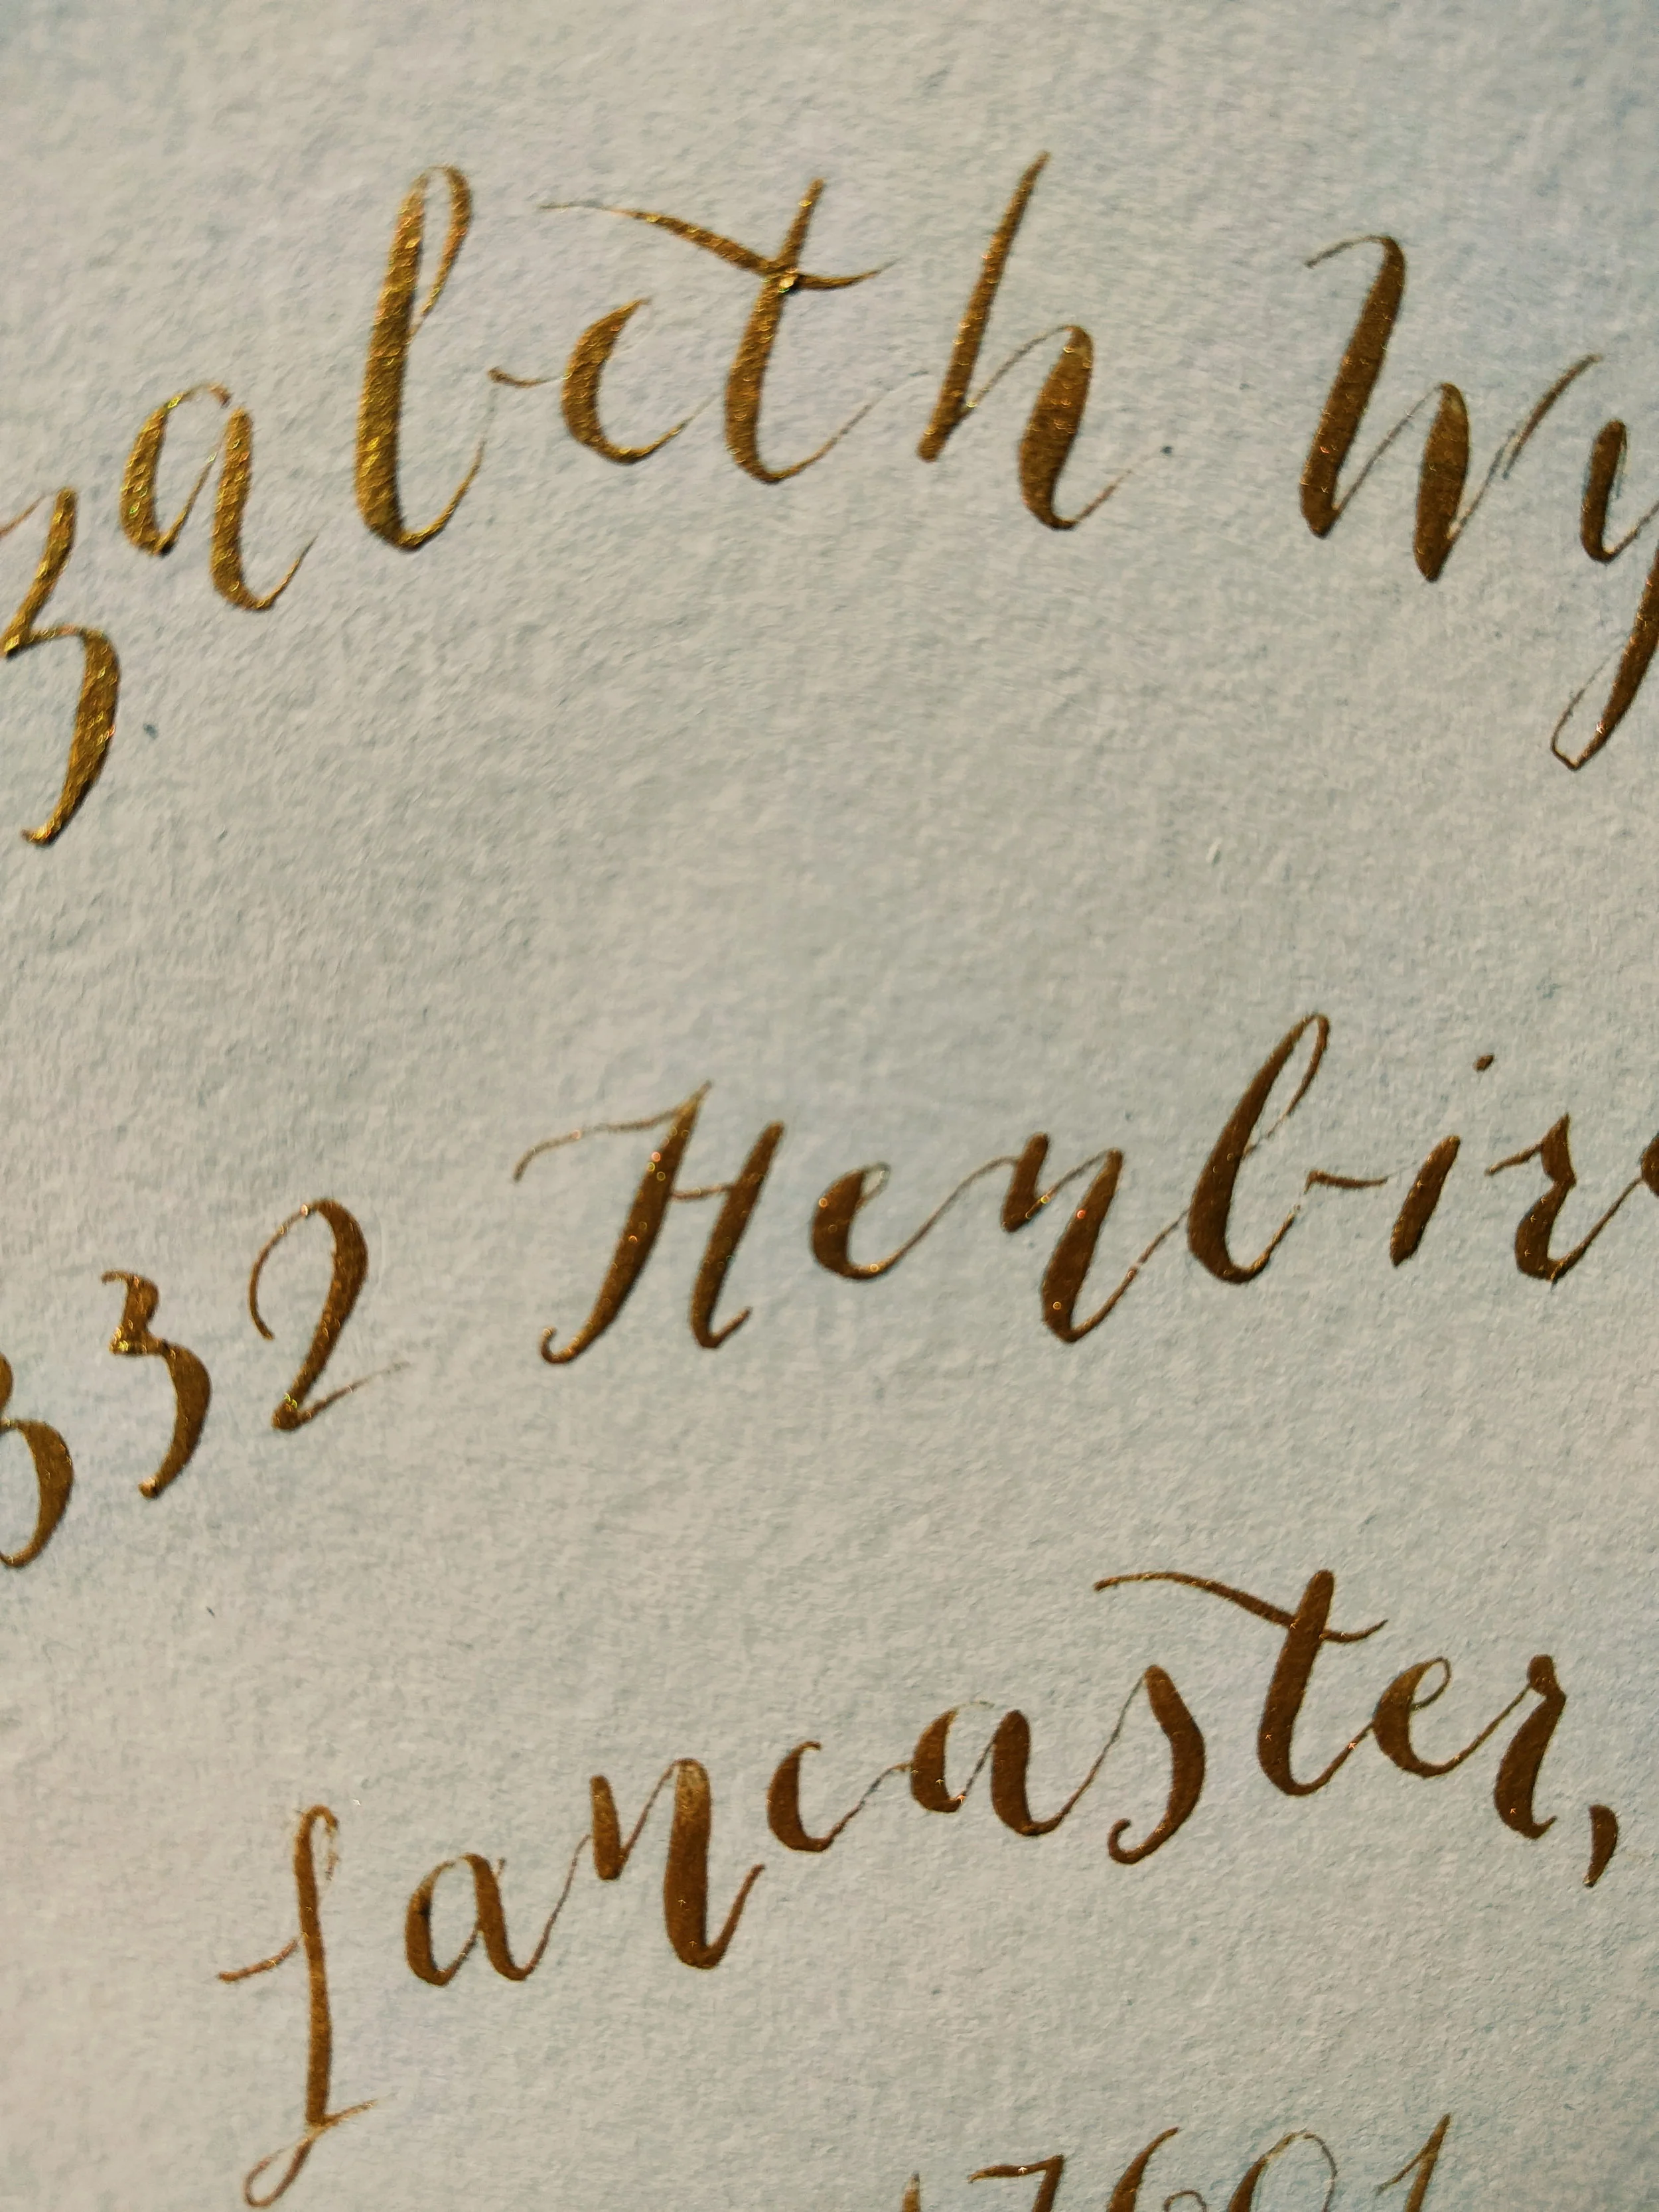 zabeth Wy
332 Henbir
Lancaster,
17601